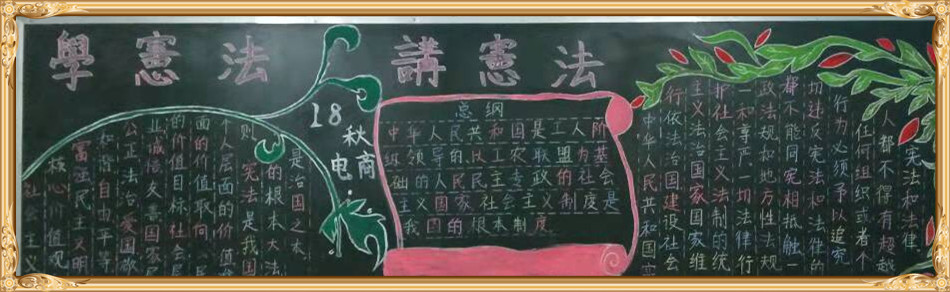 學憲法 講憲法
社会主义
核心价值观
富强民主文明
和谐自由平等
公正法治爱国敬
业诚信友善国家层
的价值目标社会层
面的价值取向公民
个人层面的价值准
则宪法是我国
的根本大法
是治国之本
18
秋
电商
总纲
中华人民共和国是工人阶
级领导的,以工农联盟为基
础的人民民主专政的社会
主义国家社会主义制度是
我国的根本制度
中华人民共和国实
行依法治国建设社会
主义法治国家国家维
护社会主义法制的统
一和尊严一切法律行
政法规和地方性法规
都不能同宪相抵触一
切违反宪法和法律的
行为必须予以追究
任何组织或者个
人都不得有超越
宪法和法律